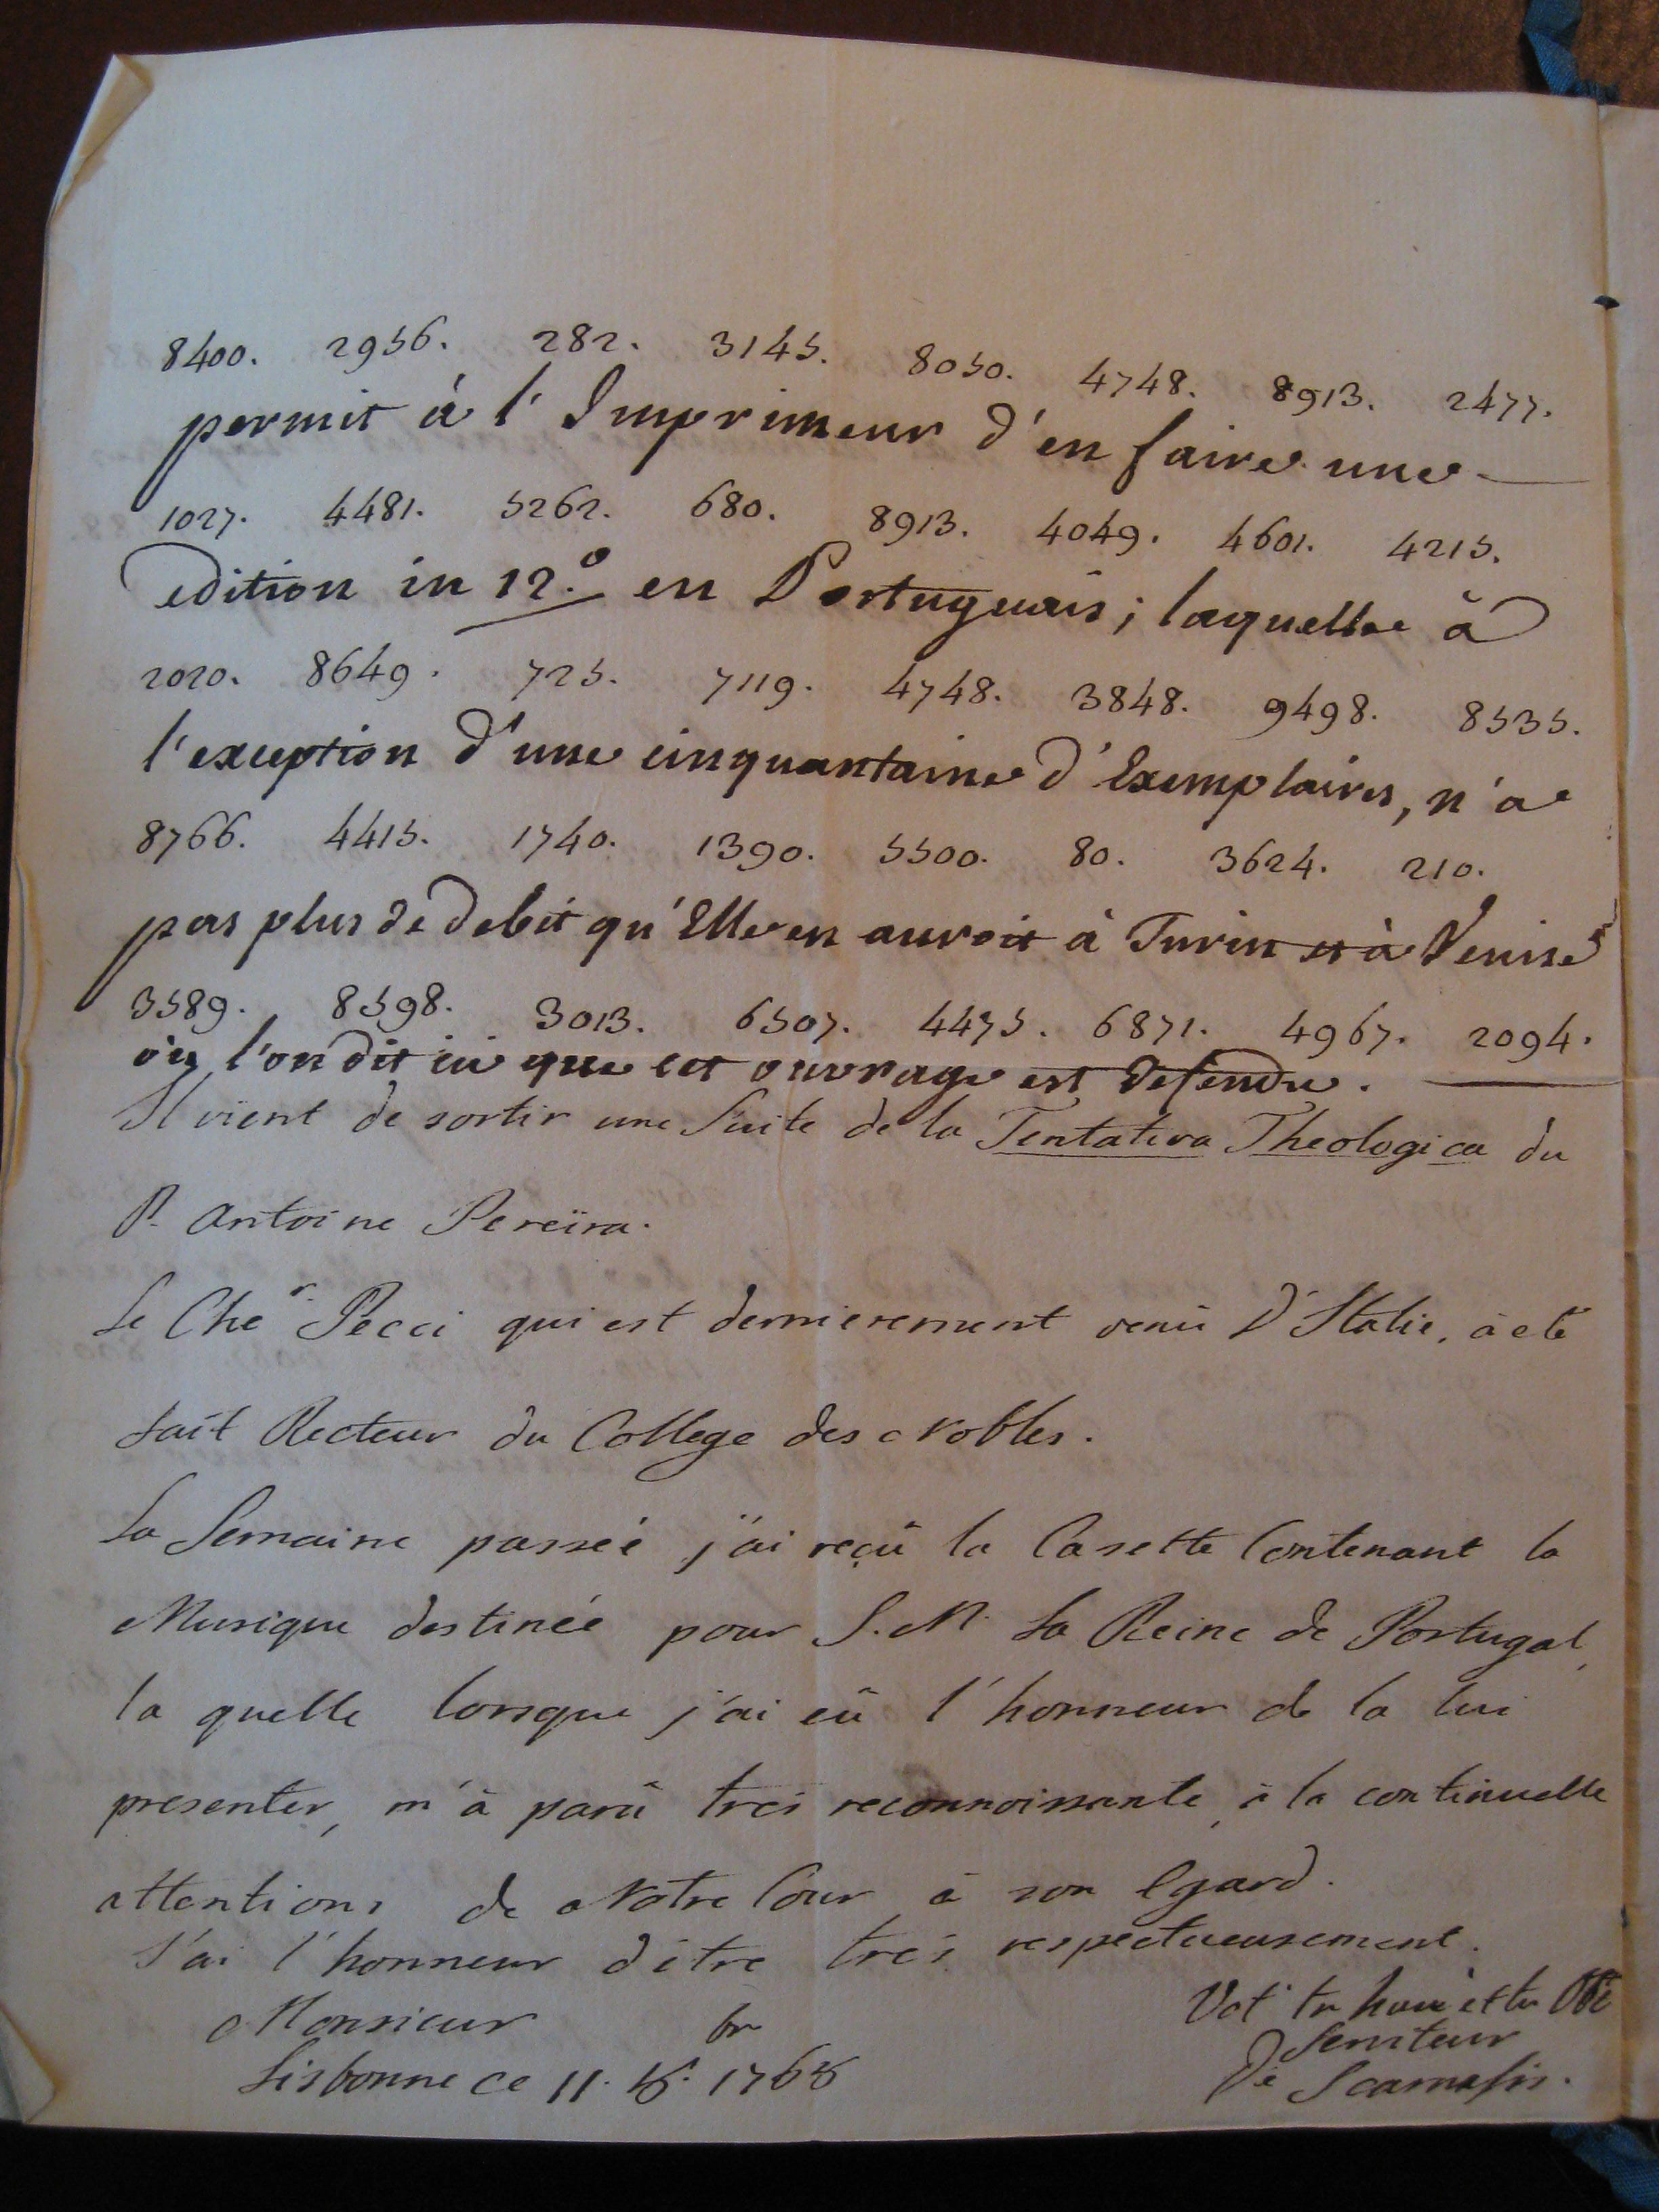 8400. 2956. 282. 3145. 8050. 4748. 8913. 2477.
permit à l'Imprimeur d'en faire une
1027. 4481. 5262. 680. 8913. 4049. 4601. 4215.
edition in 12.º en Portuguais; laquelle à
2020. 8649. 725. 7119. 4748. 3848. 9498. 8535.
l'exception d'une cinquantaine d'Exemplaires, n'a
8766. 4415. 1740. 1390. 5500. 80. 3624. 210.
pas plus de debit qu'Elle en auroit à Turin et à Venise
3589. 8598. 3013. 6507. 4475. 6871. 4967. 2094.
où l'on dit ici que cet ouvrage est defendu.
Il vient de sortir une Suite de la Tentativa Theologica du
P. Antoine Pereïra.
Le Cher Pecci qui est dernierement venû D'Italie, à eté
fait Recteur du College des Nobles.
La Semaine passée j'ai reçû la Casette Contenant la
Musique destinée pour S. M. La Reine de Portugal,
la quelle lorsque j'ai eû l'honneur de la lui
presenter, m'à parû tres reconnoissante, à la continuelle
attentions de Notre Cour à son Egard.
J'ai l'honneur d'être tres respectueusement.
Monsieur
Vot. tr
Serviteur
Lisbonne ce 11. 1768
De Scarnafis.